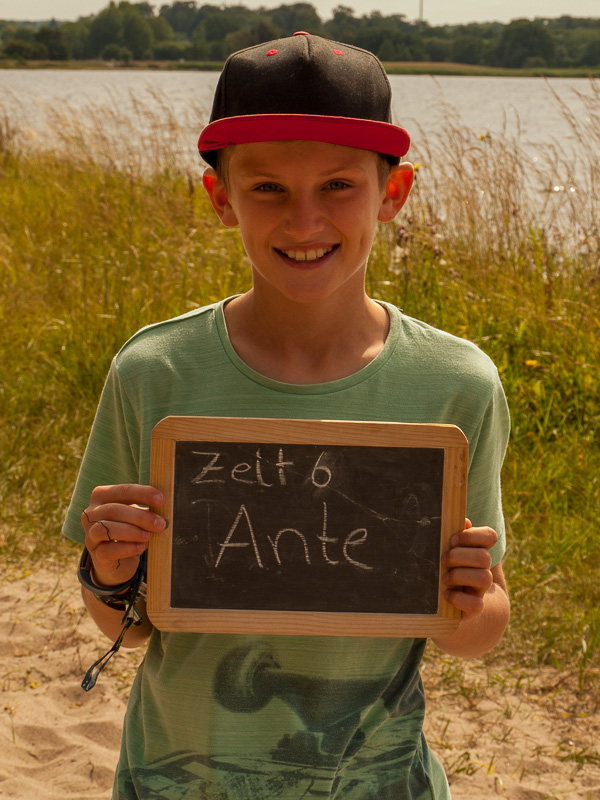 Zeit 6
Ante